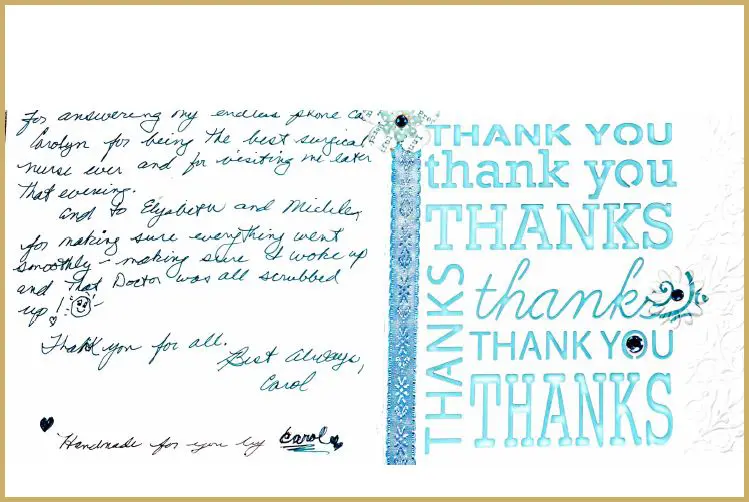 For answering my endless phone ca
Carolyn for being the best surgical
nurse ever and for visiting me later
that evening.
and to Elyzabeth and Michiley
for making sure everything went
smoothly - making sure I woke up
and that Doctor was all scrubbed
up!
Thank you for all.
Best Always,
Carol
Handmade for you by Carol
THANK YOU
thank you
THANKS
THANKS
thanks
THANK YOU
THANKS